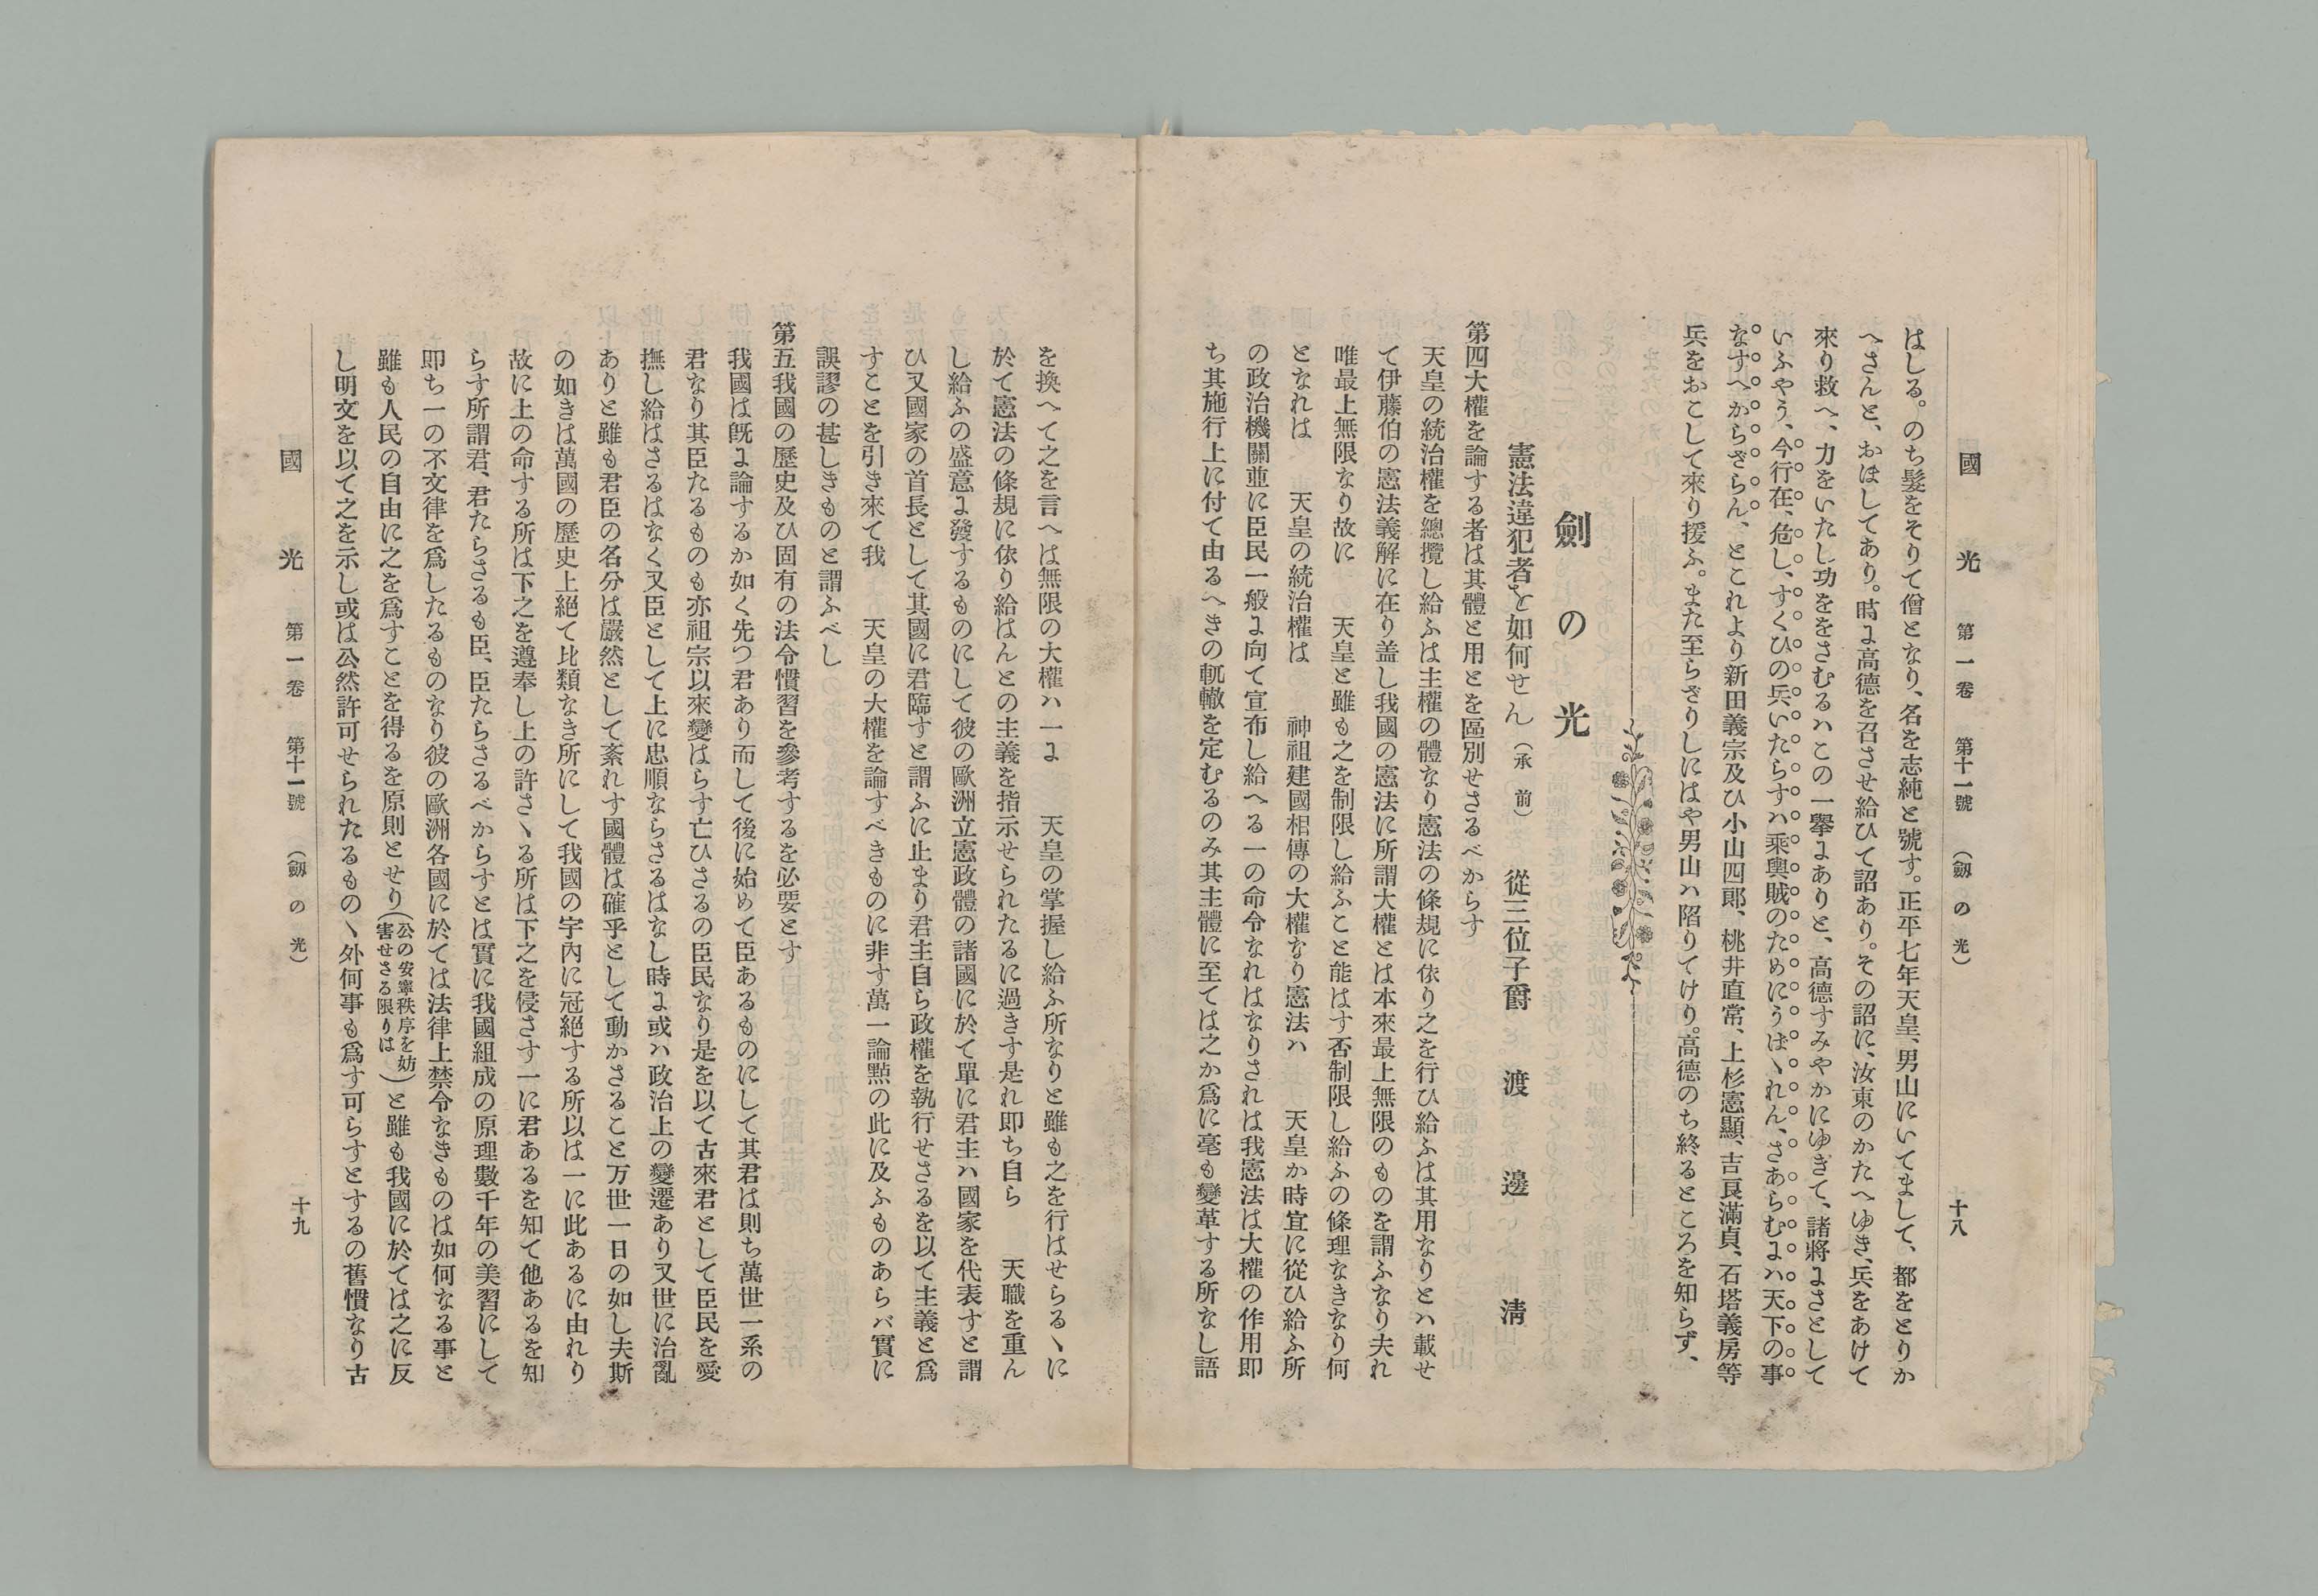 國光 第一卷 第十一號 (劒の光) 十八
はしる。のち髮をそりて僧となり、名を志純と號す。正平七年天皇、男山にいてまして、都をとりか
へさんと、おほしてあり。時に高德を召させ給ひて詔あり。その詔に、汝東のかたへゆき、兵をあけて
來り救へ、力をいたし功ををさむるハこの一擧にありと、高德すみやかにゆきて、諸將にさとして
いふやう、今行在、危し、すくひの兵いたらすハ乘輿賊のためにうばヽれん、さあらむにハ天下の事
なすへからざらん、とこれより新田義宗及ひ小山四郎、桃井直常、上杉憲顯、吉良滿貞、石塔義房等
兵をおこして來り援ふ。また至らざりしにはや男山ハ陷りてけり。高德のち終るところを知らず、
劍の光
憲法違犯者を如何せん(承前) 從三位子爵 渡邊淸
第四大權を論する者は其體と用とを區別せさるべからす
天皇の統治權を總攬し給ふは主權の體なり憲法の條規に依り之を行ひ給ふは其用なりとハ載せ
て伊藤伯の憲法義解に在り盖し我國の憲法に所謂大權とは本來最上無限のものを謂ふなり夫れ
唯最上無限なり故に 天皇と雖も之を制限し給ふこと能はす否制限し給ふの條理なきなり何
となれは 天皇の統治權は 神祖建國相傳の大權なり憲法ハ 天皇か時宜に從ひ給ふ所
の政治機關並に臣民一般に向て宣布し給へる一の命令なれはなりされは我憲法は大權の作用即
ち其施行上に付て由るへきの軌轍を定むるのみ其主體に至ては之か爲に毫も變革する所なし語
を換へて之を言へは無限の大權ハ一に 天皇の掌握し給ふ所なりと雖も之を行はせらるヽに
於て憲法の條規に依り給はんとの主義を指示せられたるに過きす是れ即ち自ら 天職を重ん
し給ふの盛意に發するものにして彼の歐洲立憲政體の諸國に於て單に君主ハ國家を代表すと謂
ひ又國家の首長として其國に君臨すと謂ふに止まり君主自ら政權を執行せさるを以て主義と爲
すことを引き來て我 天皇の大權を論すべきものに非す萬一論㸃の此に及ふものあらバ實に
誤謬の甚しきものと謂ふべし
第五我國の歷史及ひ固有の法令慣習を參考するを必要とす
我國は旣に論するか如く先つ君あり而して後に始めて臣あるものにして其君は則ち萬世一系の
君なり其臣たるものも亦祖宗以來變はらす亡ひさるの臣民なり是を以て古來君として臣民を愛
撫し給はさるはなく又臣として上に忠順ならさるはなし時に或ハ政治上の變遷あり又世に治亂
ありと雖も君臣の名分は嚴然として紊れす國體は確乎として動かさること万世一日の如し夫斯
の如きは萬國の歷史上絕て比類なき所にして我國の宇內に冠絕する所以は一に此あるに由れり
故に上の命する所は下之を遵奉し上の許さヽる所は下之を侵さす一に君あるを知て他あるを知
らす所謂君、君たらさるも臣、臣たらさるべからすとは實に我國組成の原理數千年の美習にして
即ち一の不文律を爲したるものなり彼の歐洲各國に於ては法律上禁令なきものは如何なる事と
雖も人民の自由に之を爲すことを得るを原則とせり(公の安寧秩序を妨害せさる限りは)と雖も我國に於ては之に反
し明文を以て之を示し或は公然許可せられたるものヽ外何事も爲す可らすとするの舊慣なり古
國光 第一卷 第十一號 (劒の光) 十九